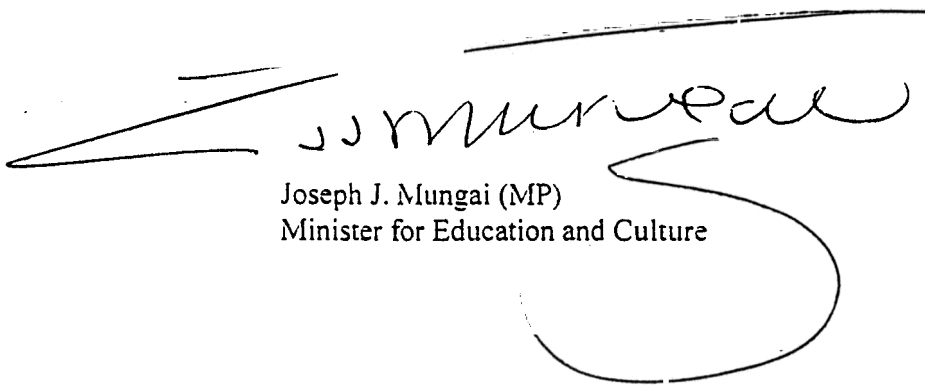 JJMungai
Joseph J. Mungai (MP)
Minister for Education and Culture